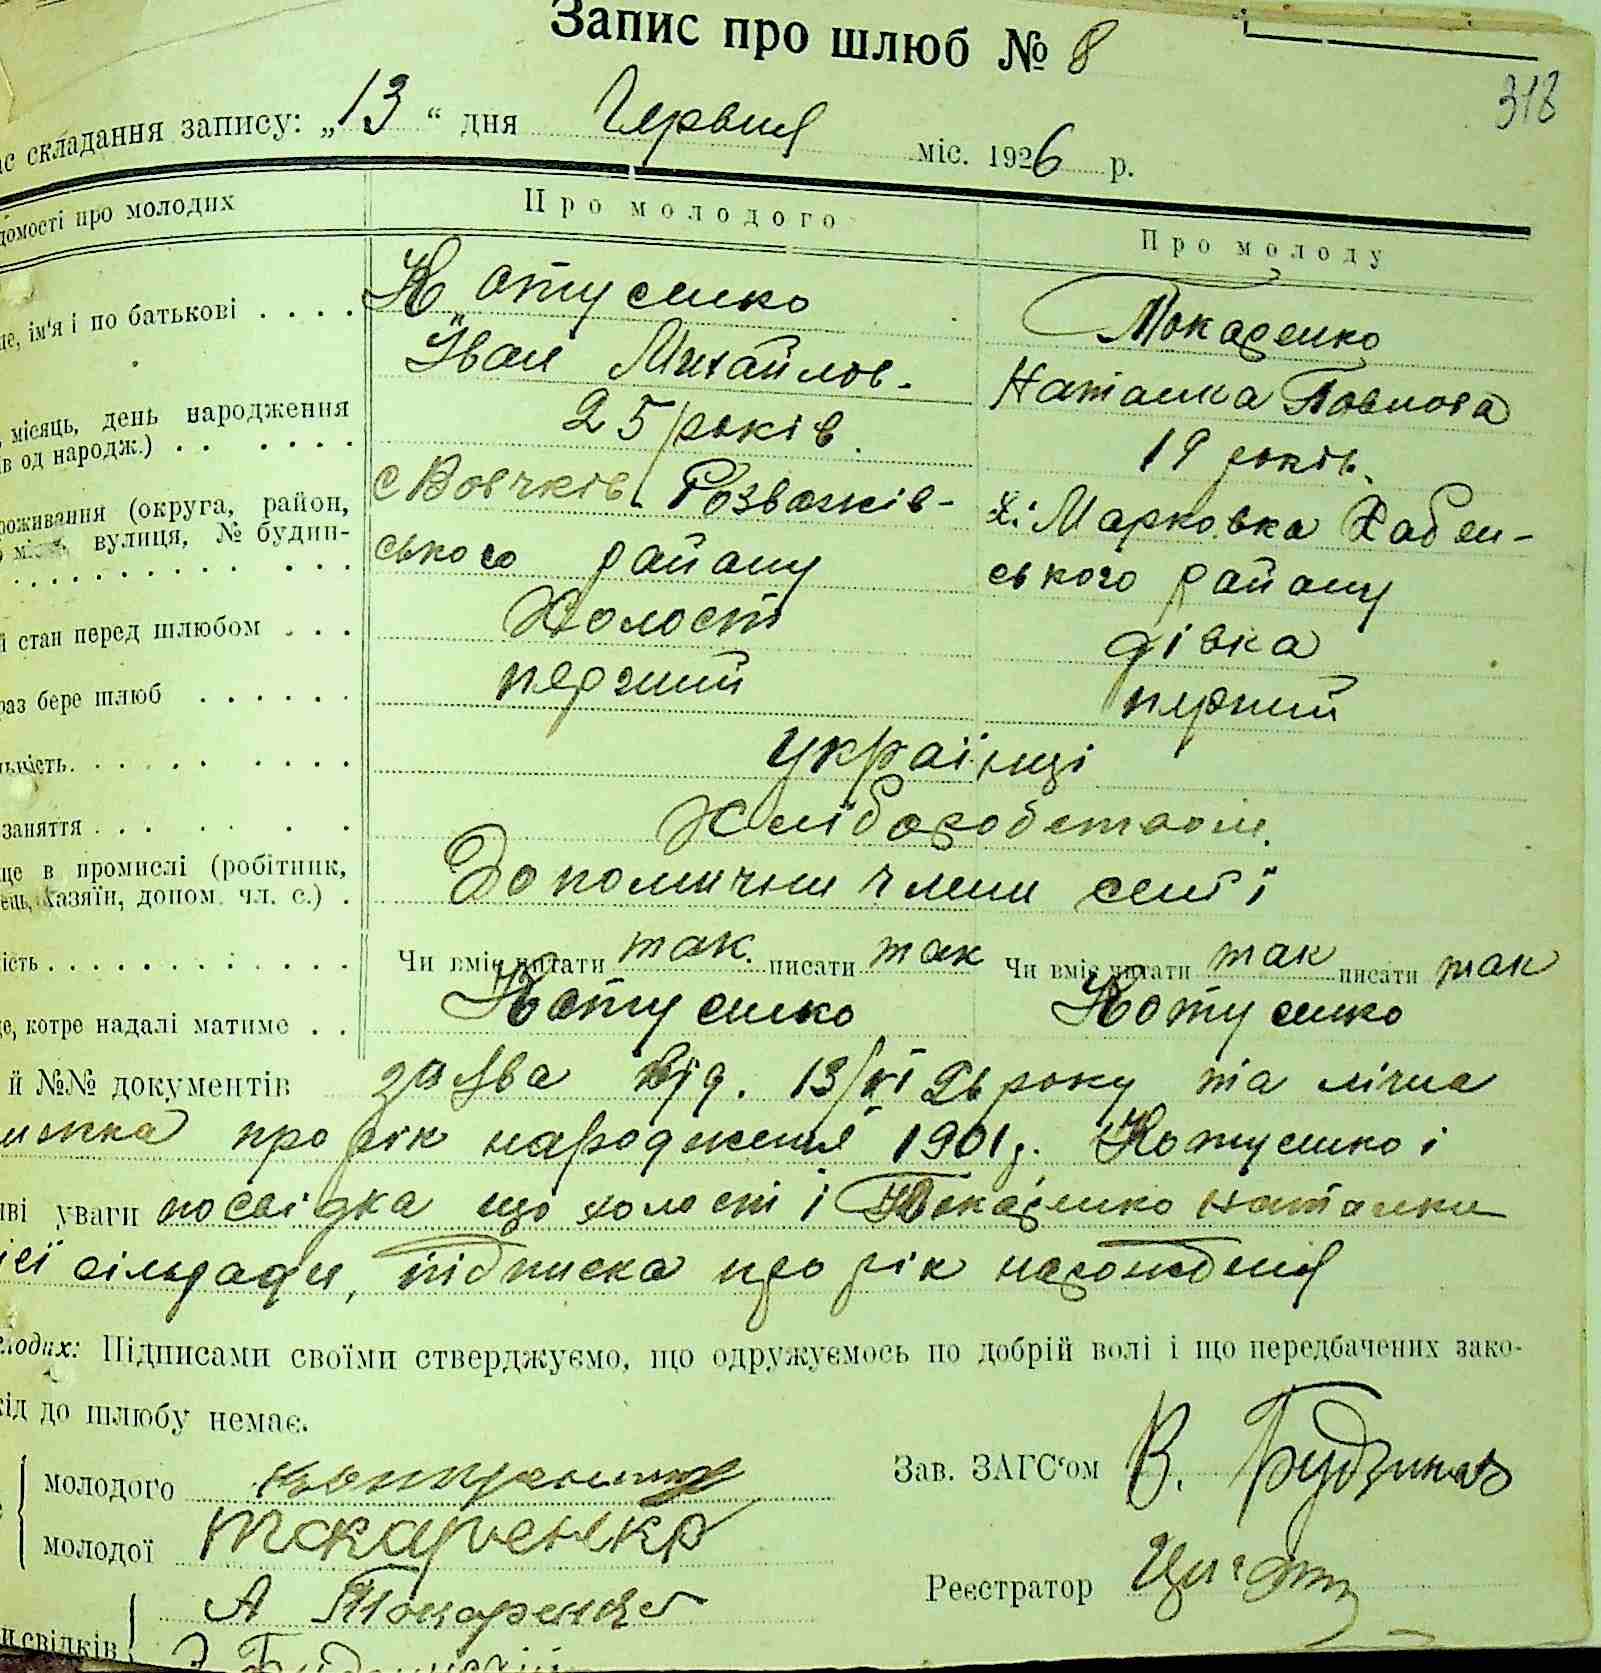 Запис про шлюб № 8
318
складання запису: „13“ дня Червня міс. 1926 р.
домості про молодих Про молодого Про молоду
ім'я і по батькові . . . . Котусенко Токаренко
Іван Михайлов. Наталка Павлова
місяць, день народження
од народж.) . . . . . . 25 років 19 років.
роживання (округа, район, с Вовчків Розважів- х. Марковка Хабен-
вулиця, № будин-
ського району ського району
стан перед шлюбом . . . Холост дівка
раз бере шлюб . . . . . . перший перший
українці
заняття . . . . . . Хліборобством.
в промислі (робітник,
хазяїн, допом. чл. с.) . Допомічни члени семї
Чи вміє читати так. писати так Чи вміє читати так писати так
котре надалі матиме . . Котусенко Котусенко
й №№ документів заява від. 13/VI 26 року та лічна
про рік народження 1901 р. Котусенко і
уваги посвідка що холост і Токаренко Наталки
сільради, підписка про рік народження
лодих: Підписами своїми стверджуємо, що одружуємось по добрій волі і що передбачених зако-
до шлюбу немає.
Зав. ЗАГС‘ом В.
молодого
молодої токаренко
Реєстратор
А Токаренко
свідків